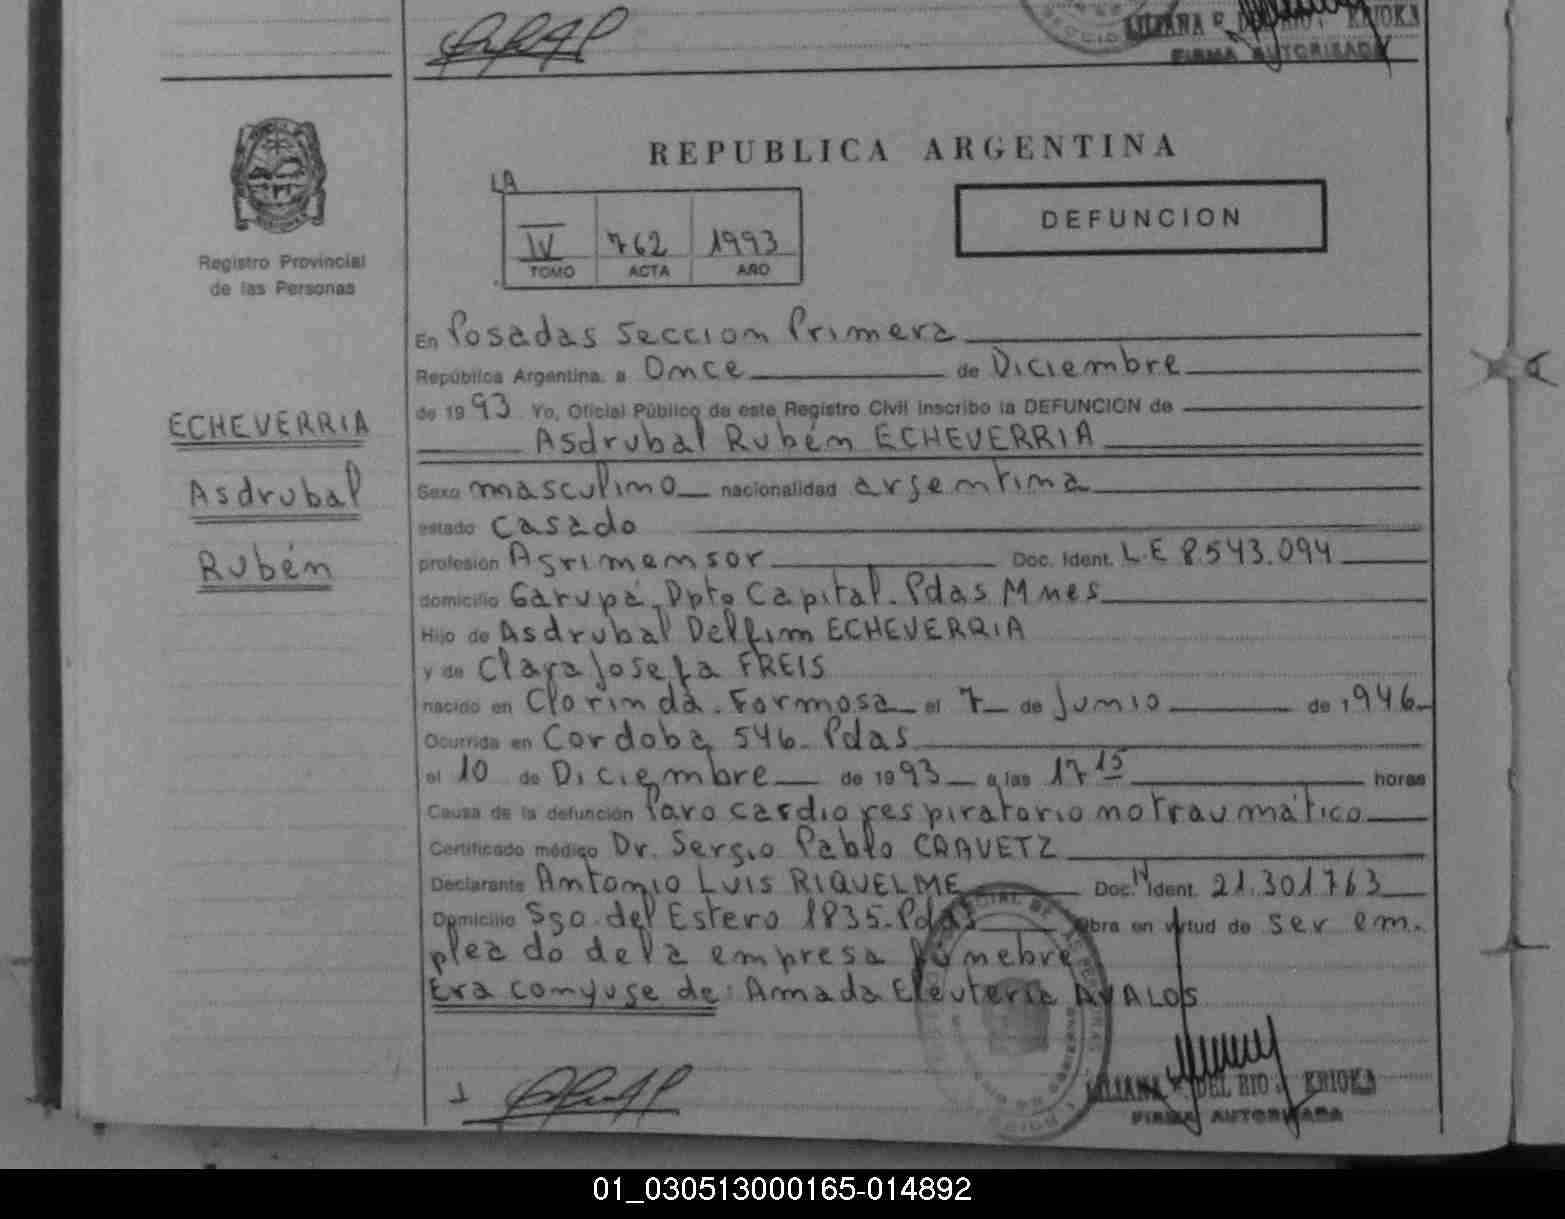 LILIANA E. DEL RIO KRIOKA
FIRMA AUTORIZADA
REPUBLICA ARGENTINA
LA
IV 762 1993
TOMO ACTA AÑO
DEFUNCION
Registro Provincial
de las Personas
ECHEVERRIA
Asdrubal
Rubén
En Posadas Seccion Primera
República Argentina, a Once de Diciembre
de 1993 Yo, Oficial Público de este Registro Civil inscribo la DEFUNCION de
Asdrubal Rubén ECHEVERRIA
Sexo masculino nacionalidad argentina
estado Casado
profesión Agrimensor Doc. Ident. L.E 8.543.094
domicilio Garupá. Dpto Capital. Pdas Mnes
Hijo de Asdrubal Delfim ECHEVERRIA
y de Clara Josefa FREIS
nacido en Clorinda. Formosa el 7 de Junio de 1946
Ocurrida en Cordoba 546. Pdas
el 10 de Diciembre de 1993 a las 17 15 horas
Causa de la defunción Paro cardio respiratorio no traumático
Certificado médico Dr. Sergio Pablo CRAVETZ
Declarante Antonio Luis RIQUELME Doc. N Ident. 21.301763
Domicilio Sgo. del Estero 1835. Pdas Obra en virtud de ser em.
pleado de la empresa funebre
Era conyuge de: Amada Eleuteria AVALOS
LILIANA E. DEL RIO KRIOKA
FIRMA AUTORIZADA
01_030513000165-014892